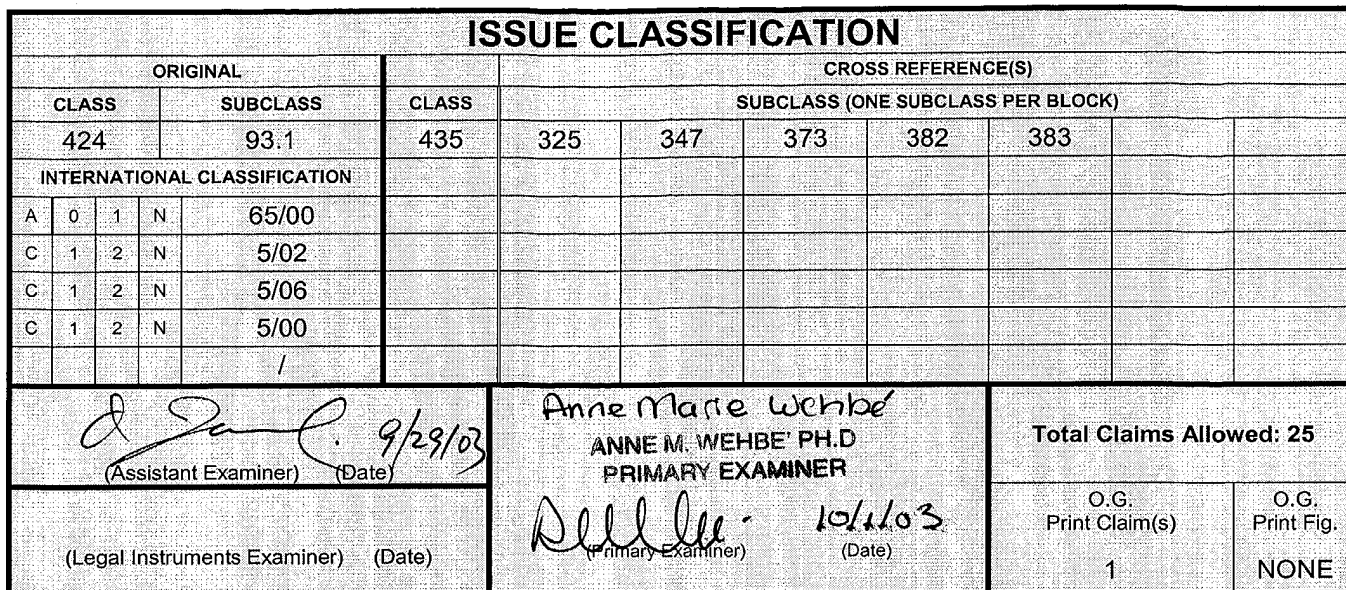 ISSUE CLASSIFICATION
ORIGINAL CROSS REFERENCE(S)
CLASS SUBCLASS CLASS SUBCLASS (ONE SUBCLASS PER BLOCK)
424 93.1 435 325 347 373 382 383
INTERNATIONAL CLASSIFICATION
A 0 1 N 65/00
C 1 2 N 5/02
C 1 2 N 5/06
C 1 2 N 5/00
/
9/29/03
(Assistant Examiner) (Date)
(Legal Instruments Examiner) (Date)
Anne Marie Wehbé
ANNE M. WEHBE' PH.D
PRIMARY EXAMINER
10/1/03
(Primary Examiner) (Date)
Total Claims Allowed: 25
O.G. Print Claim(s) O.G. Print Fig.
1 NONE